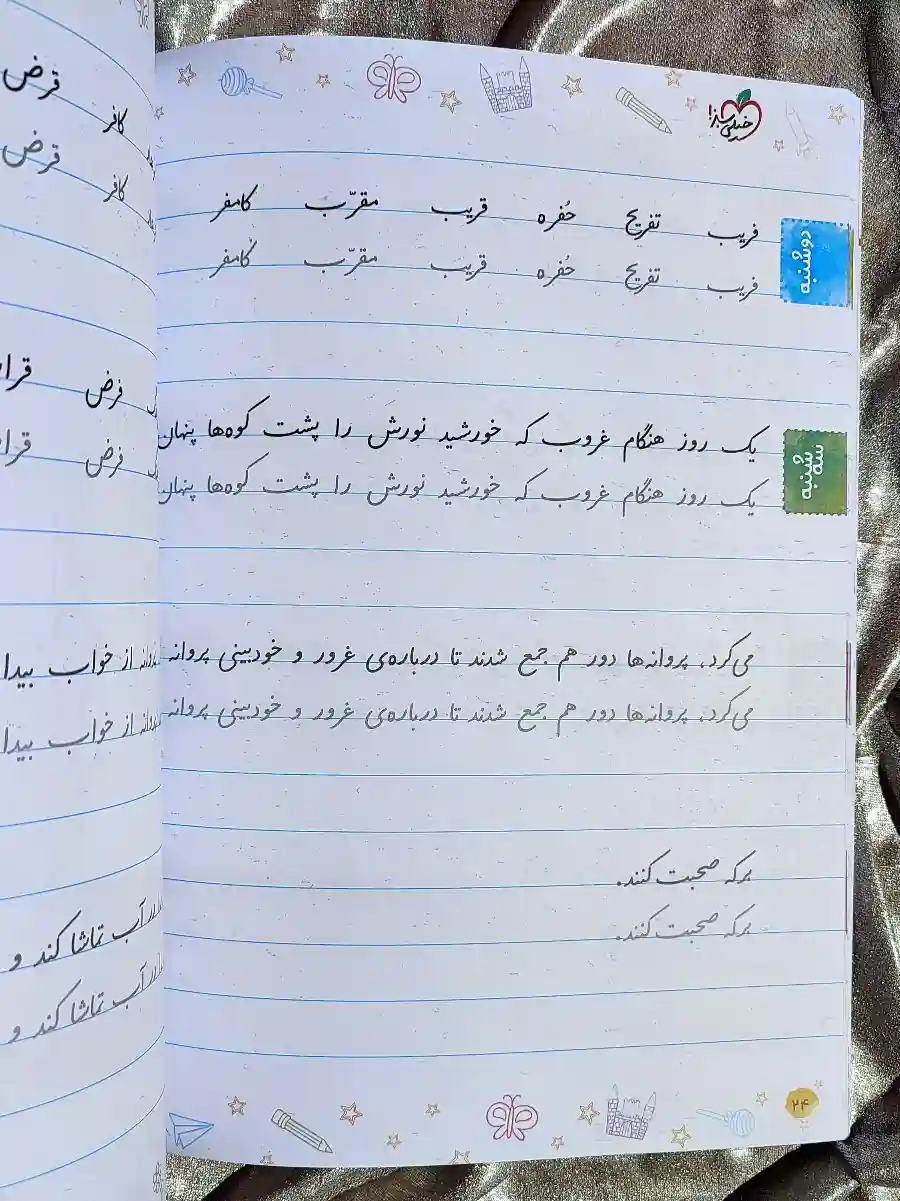 خیلی سبز
دوشنبه
فریب تفریح حُفره قریب مقرّب کامفر
فریب تفریح حُفره قریب مقرّب کامفر
سه شنبه
یک روز هنگام غروب که خورشید نورش را پشت کوه‌ها پنهان
یک روز هنگام غروب که خورشید نورش را پشت کوه‌ها پنهان
می‌کرد، پروانه‌ها دور هم جمع شدند تا درباره‌ی غرور و خودبینی پروانه
می‌کرد، پروانه‌ها دور هم جمع شدند تا درباره‌ی غرور و خودبینی پروانه
برکه صحبت کنند.
برکه صحبت کنند.
۲۴
قرض
کافر
قرض
کافر
قرض
قرض
از خواب
از خواب
آب تماشا کند و
آب تماشا کند و